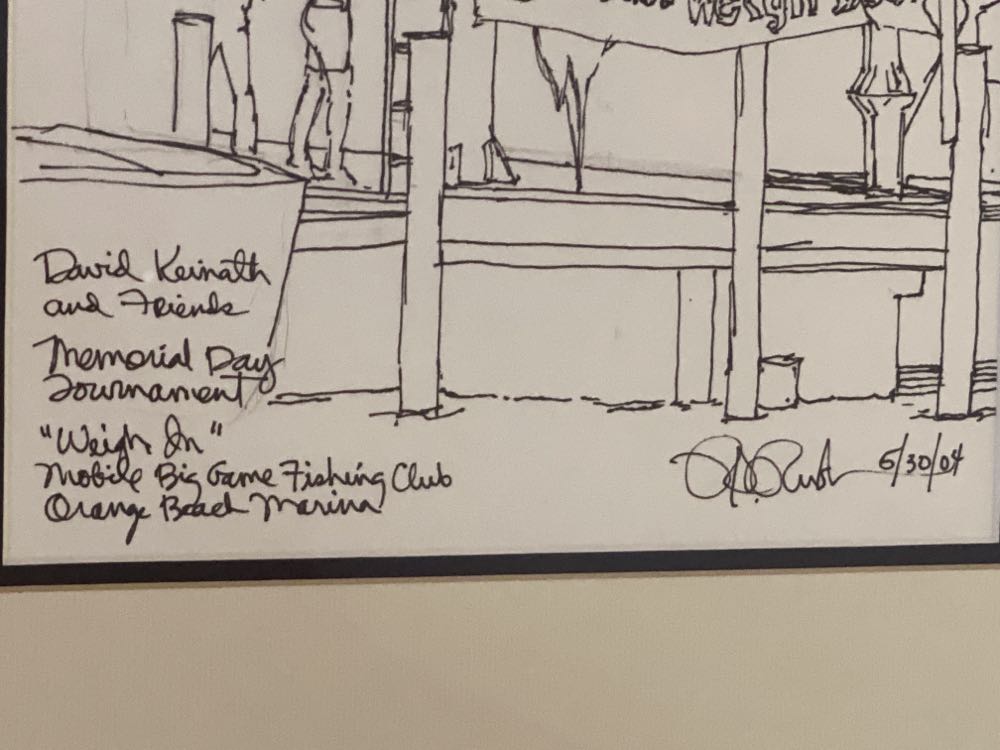 Weigh
David Keinath
and Friends
Memorial Day
Tournament
"Weigh In"
Mobile Big Game Fishing Club
Orange Beach Marina
5/30/04